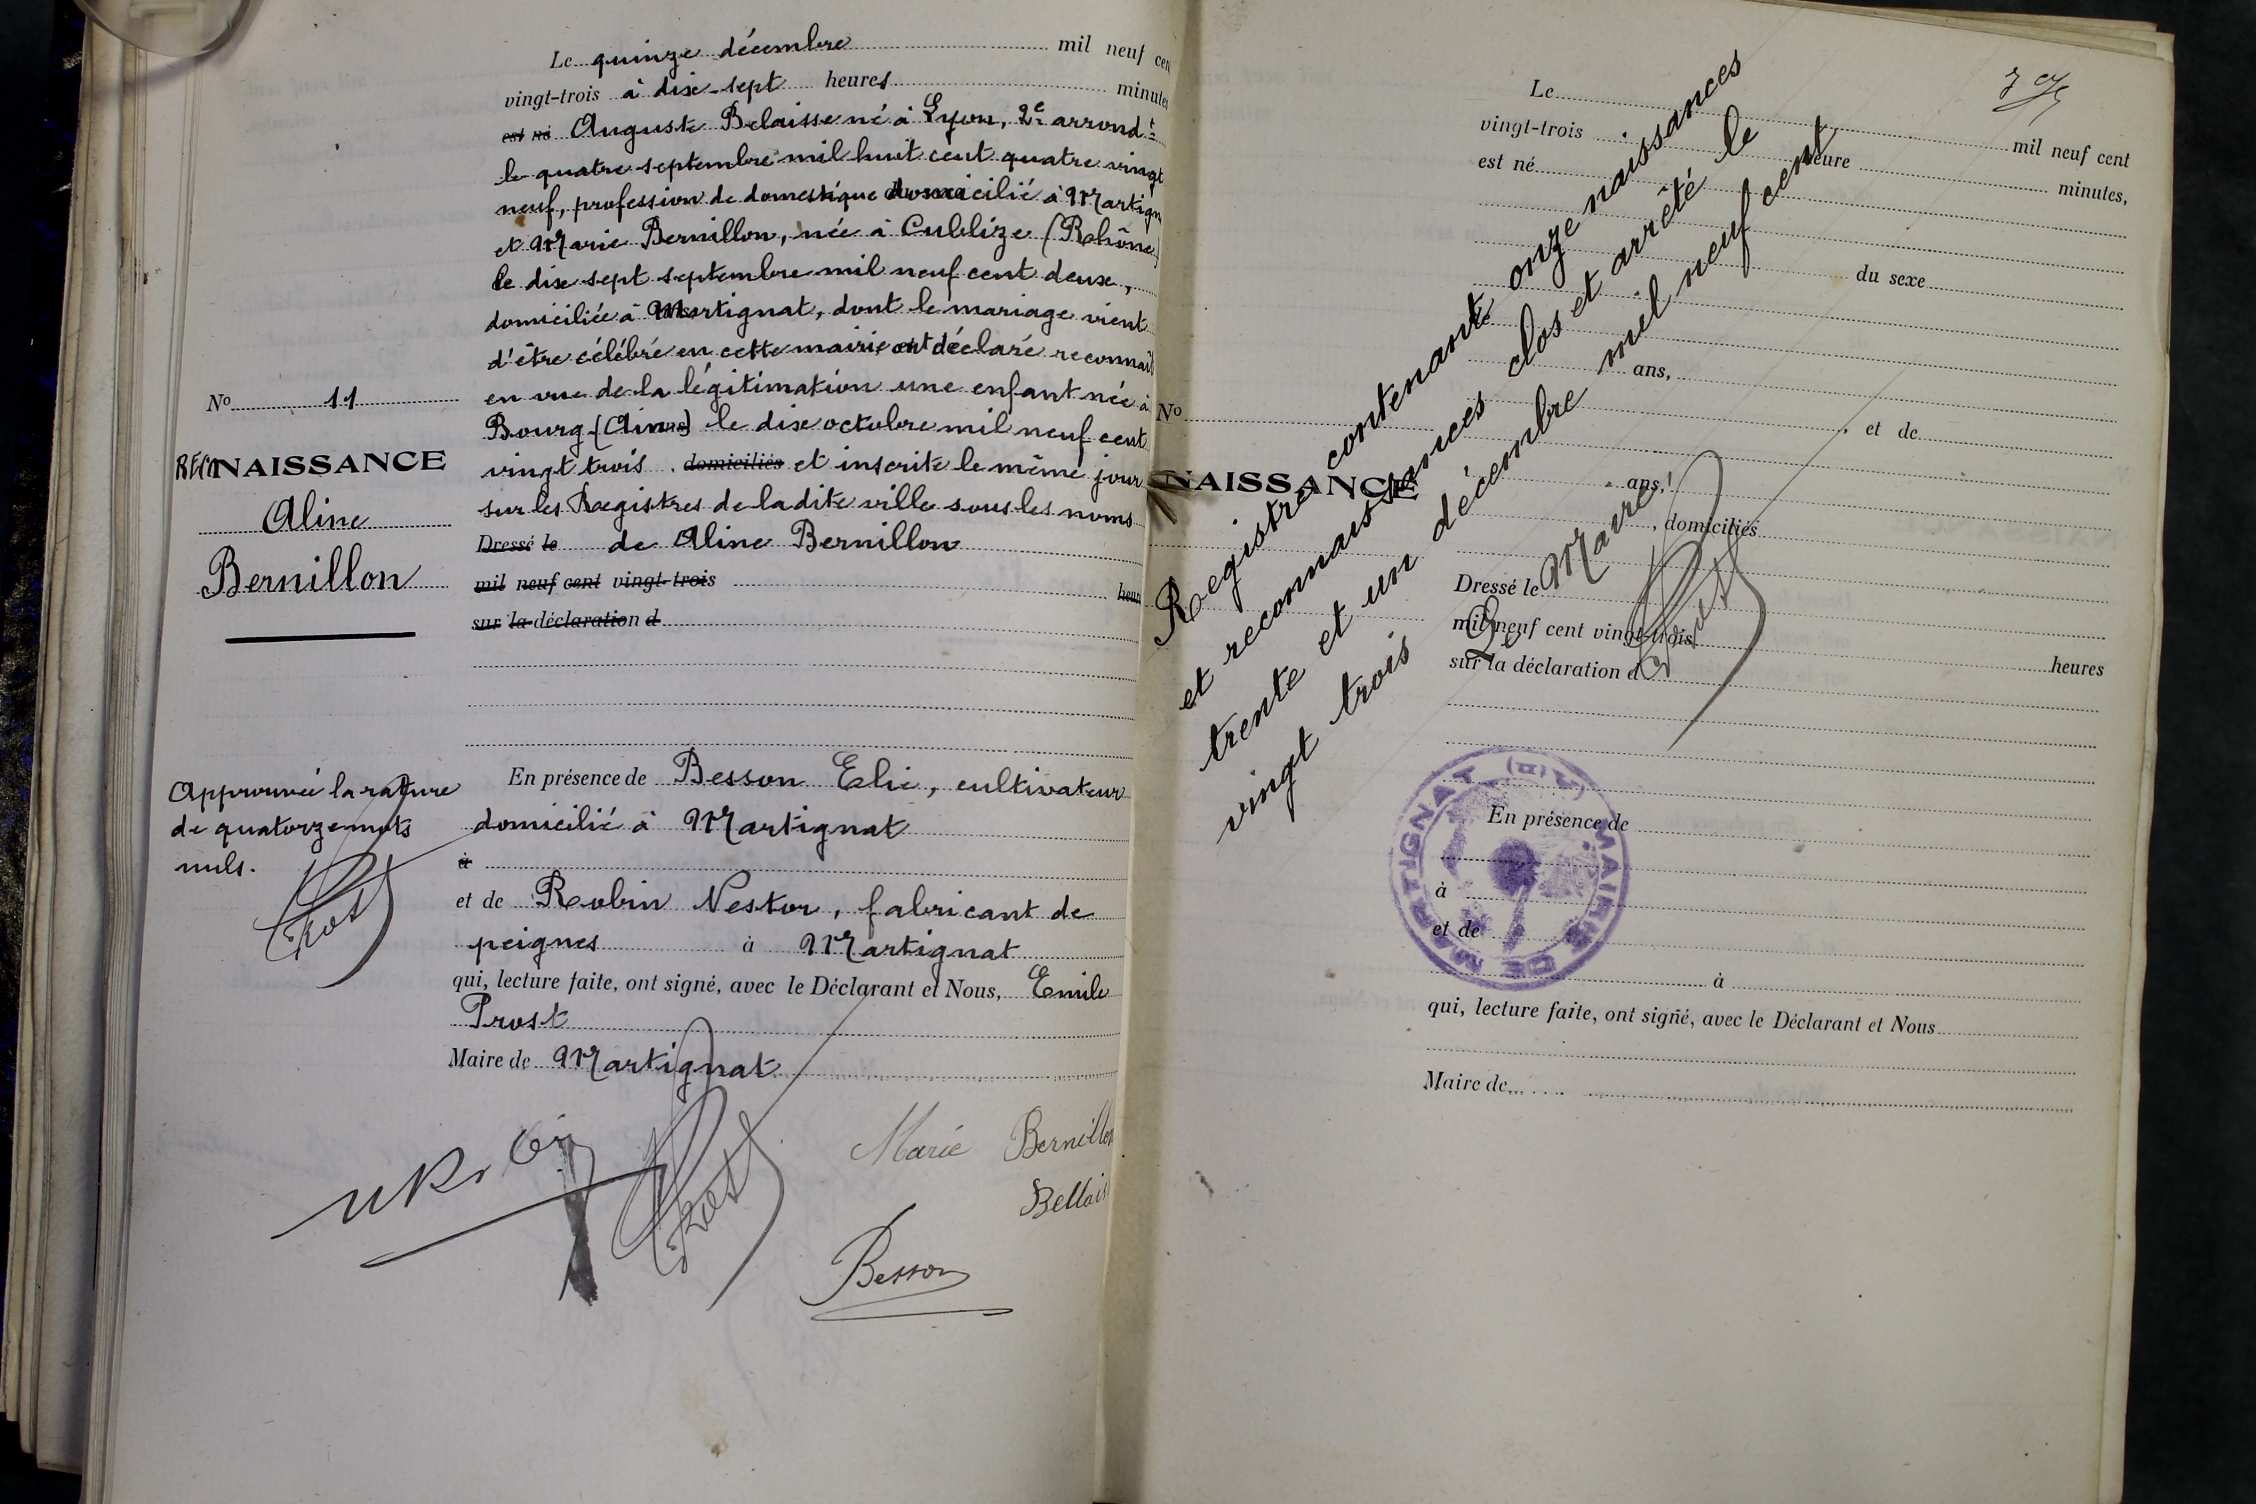 Le quinze décembre mil neuf cen
vingt-trois à dix-sept heures minutes
est né Auguste Belaisse né à Lyon, 2e arrondt
le quatre septembre mil huit cent quatre vingt
neuf, profession de domestique domicilié à Martign
et Marie Bernillon, née à Cublize (Rhône)
le dix sept septembre mil neuf cent deux,
domiciliée à Martignat, dont le mariage vient
d'être célébré en cette mairie ont déclaré reconnaît
en vue de la légitimation une enfant née à
Bourg (Ain) le dix octobre mil neuf cent
vingt trois . domiciliés et inscrite le même jour
sur les Registres de ladite ville sous les noms
Dressé le de Aline Bernillon
mil neuf cent vingt-trois heur
sur la déclaration d
No 11
RECONNAISSANCE
Aline
Bernillon
Approuvée la rature
de quatorze mots
nuls.
Prost
En présence de Besson Elie, cultivateur
domicilié à Martignat
à
et de Robin Nestor, fabricant de
peignes à Martignat
qui, lecture faite, ont signé, avec le Déclarant et Nous, Emile
Prost
Maire de Martignat
Prost
Marie Bernillon
Bellais
Besson
Le mil neuf cent
vingt-trois heure minutes,
est né
du sexe
de
ans,
No
et de
NAISSANCE
ans,
, domiciliés
Dressé le
mil neuf cent vingt-trois heures
sur la déclaration d
Registre contenant onze naissances
et reconnaissances clos et arrêté le
trente et un décembre mil neuf cent
vingt trois
Le Maire
Prost
MAIRIE DE MARTIGNAT
En présence de
à
et de
à
qui, lecture faite, ont signé, avec le Déclarant et Nous
Maire de